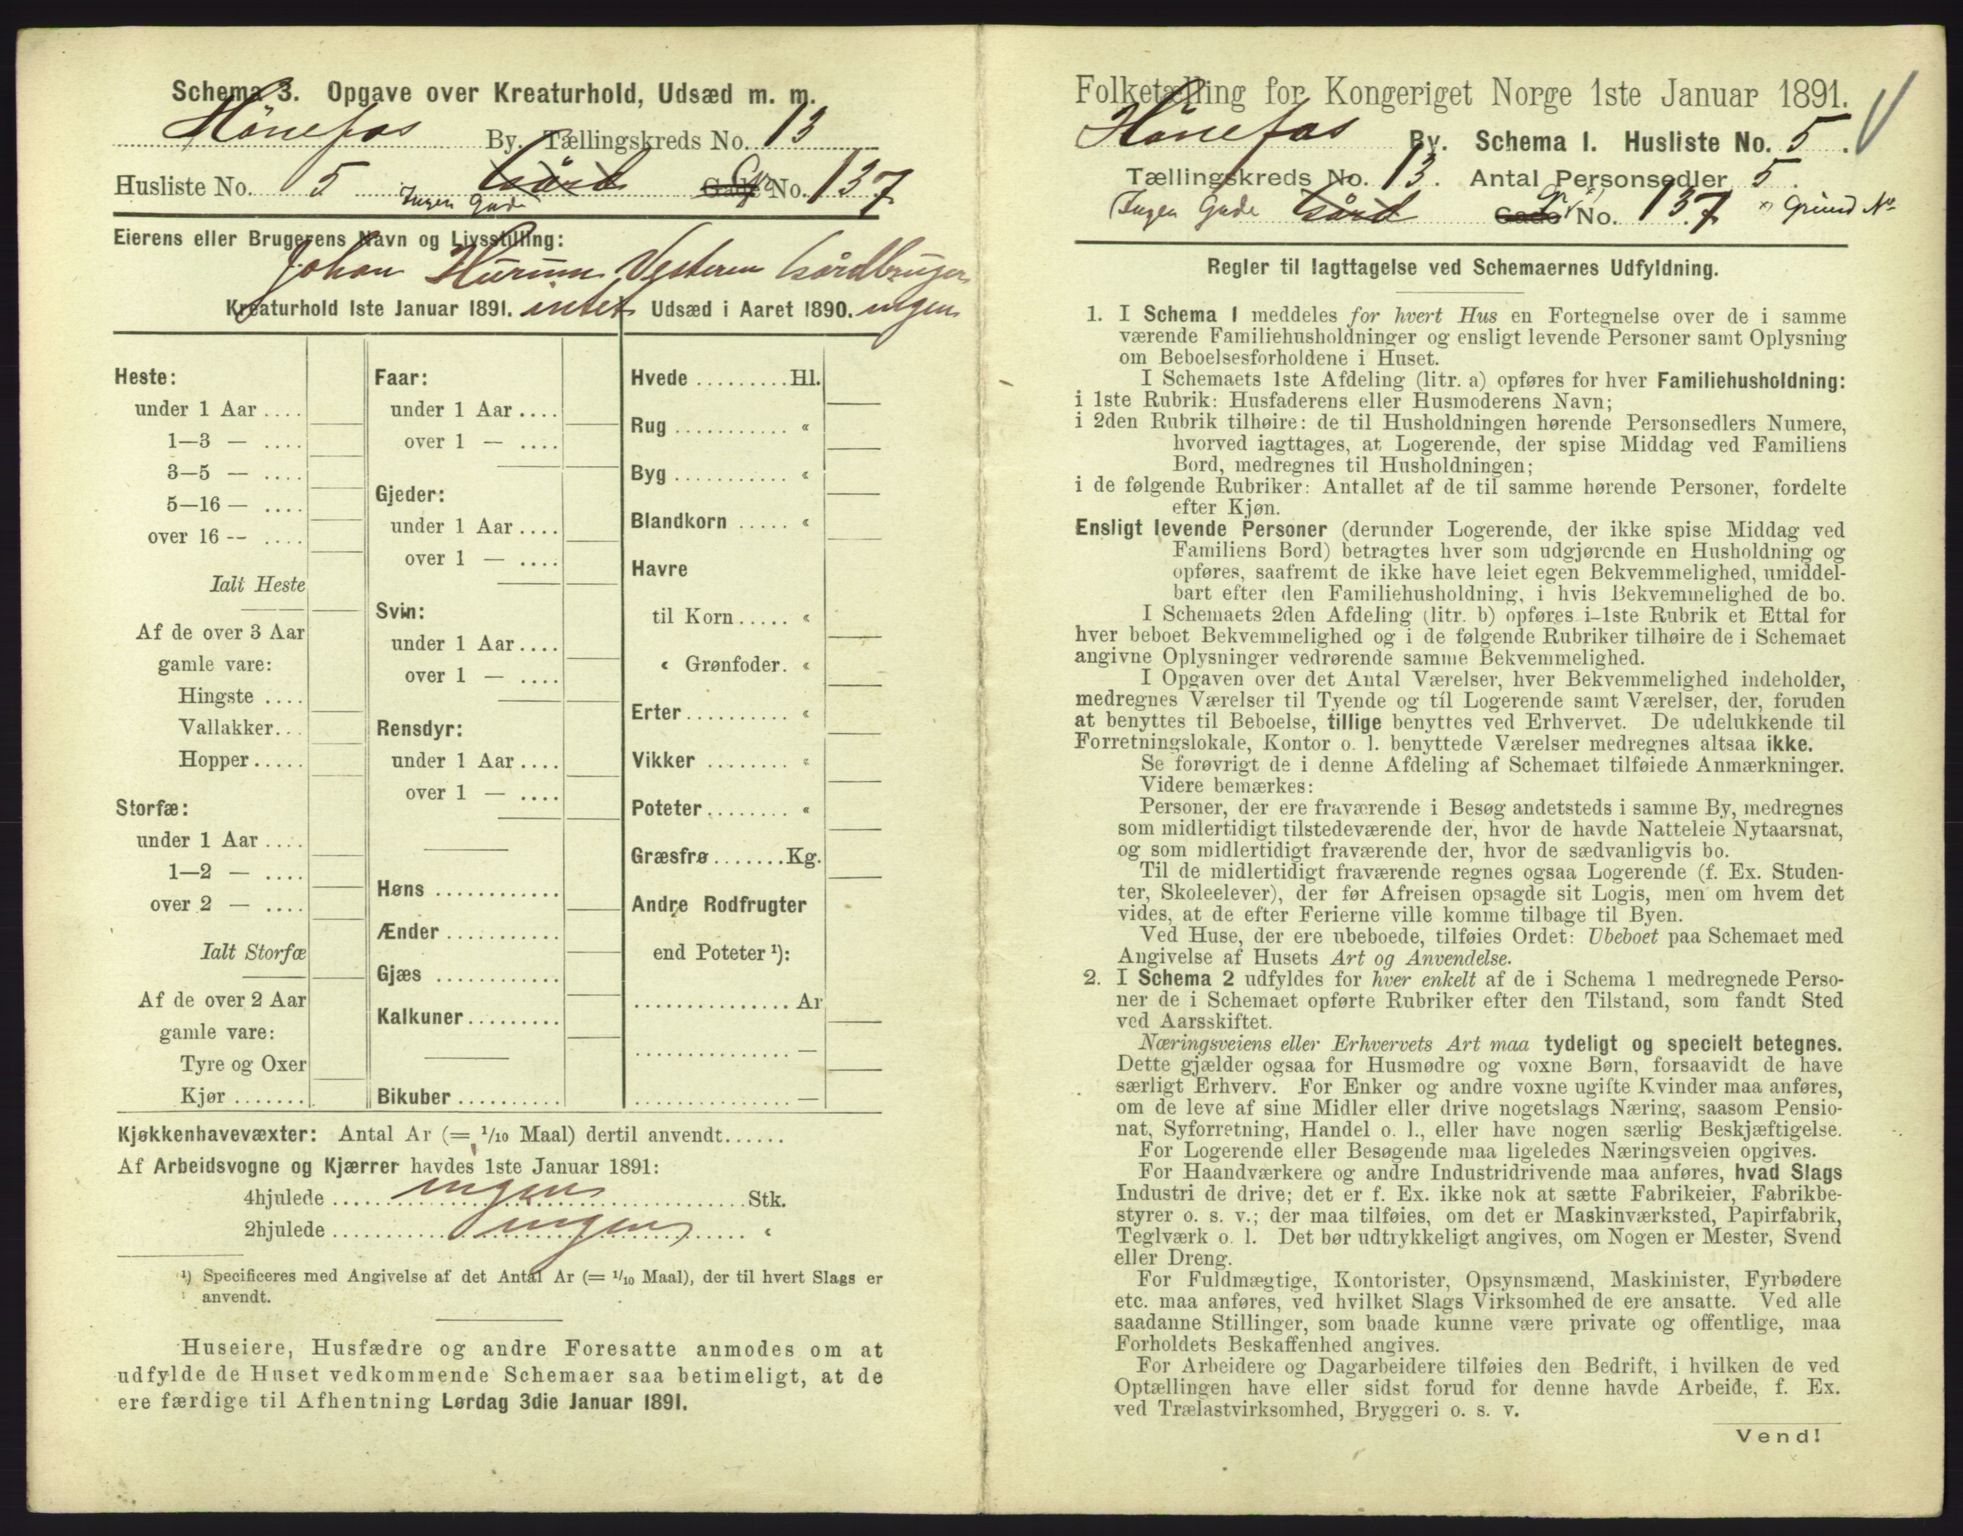 Schema 3. Opgave over Kreaturhold, Udsæd m. m.
Hönefos By. Tællingskreds No. 13
Husliste No. 5 Gård Gade No. 137
Ingen Gade
Eierens eller Brugerens Navn og Livsstilling:
Johan Hurum, Vesteren Gårdbruger
Kreaturhold 1ste Januar 1891. intet
Heste:
under 1 Aar ....
1—3 — ....
3—5 — ....
5—16 — ....
over 16 -- ....
Ialt Heste
Af de over 3 Aar
gamle vare:
Hingste ....
Vallakker...
Hopper.....
Storfæ:
under 1 Aar ....
1—2 — ....
over 2 — ....
Ialt Storfæ
Af de over 2 Aar
gamle vare:
Tyre og Oxer
Kjør .......
Faar:
under 1 Aar ....
over 1 — ....
Gjeder:
under 1 Aar ....
over 1 — ....
Svin:
under 1 Aar ....
over 1 — ....
Rensdyr:
under 1 Aar ....
over 1 — ....
Høns ............
Ænder ...........
Gjæs ............
Kalkuner.........
Bikuber ..........
Udsæd i Aaret 1890. ingen
Hvede .........Hl.
Rug ........... «
Byg ........... «
Blandkorn ..... «
Havre
til Korn..... «
« Grønfoder. «
Erter.......... «
Vikker ........ «
Poteter........ «
Græsfrø.......Kg.
Andre Rodfrugter
end Poteter ¹):
............... Ar
............... —
............... —
Kjøkkenhavevæxter: Antal Ar (= 1/10 Maal) dertil anvendt......
Af Arbeidsvogne og Kjærrer havdes 1ste Januar 1891:
4hjulede ..... ingen ..... Stk.
2hjulede ..... ingen ..... «
¹) Specificeres med Angivelse af det Antal Ar (= 1/10 Maal), der til hvert Slags er
anvendt.
Huseiere, Husfædre og andre Foresatte anmodes om at
udfylde de Huset vedkommende Schemaer saa betimeligt, at de
ere færdige til Afhentning Lørdag 3die Januar 1891.
Folketælling for Kongeriget Norge 1ste Januar 1891.
Hönefos By. Schema I. Husliste No. 5.
Tællingskreds No. 13. Antal Personsedler 5.
Ingen Gade Gård Gade No. 137 x) Grund No
Regler til Iagttagelse ved Schemaernes Udfyldning.
1. I Schema I meddeles for hvert Hus en Fortegnelse over de i samme
værende Familiehusholdninger og ensligt levende Personer samt Oplysning
om Beboelsesforholdene i Huset.
I Schemaets 1ste Afdeling (litr. a) opføres for hver Familiehusholdning:
i 1ste Rubrik: Husfaderens eller Husmoderens Navn;
i 2den Rubrik tilhøire: de til Husholdningen hørende Personsedlers Numere,
hvorved iagttages, at Logerende, der spise Middag ved Familiens
Bord, medregnes til Husholdningen;
i de følgende Rubriker: Antallet af de til samme hørende Personer, fordelte
efter Kjøn.
Ensligt levende Personer (derunder Logerende, der ikke spise Middag ved
Familiens Bord) betragtes hver som udgjørende en Husholdning og
opføres, saafremt de ikke have leiet egen Bekvemmelighed, umiddel-
bart efter den Familiehusholdning, i hvis Bekvemmelighed de bo.
I Schemaets 2den Afdeling (litr. b) opføres i 1ste Rubrik et Ettal for
hver beboet Bekvemmelighed og i de følgende Rubriker tilhøire de i Schemaet
angivne Oplysninger vedrørende samme Bekvemmelighed.
I Opgaven over det Antal Værelser, hver Bekvemmelighed indeholder,
medregnes Værelser til Tyende og til Logerende samt Værelser, der, foruden
at benyttes til Beboelse, tillige benyttes ved Erhvervet. De udelukkende til
Forretningslokale, Kontor o. l. benyttede Værelser medregnes altsaa ikke.
Se forøvrigt de i denne Afdeling af Schemaet tilføiede Anmærkninger.
Videre bemærkes:
Personer, der ere fraværende i Besøg andetsteds i samme By, medregnes
som midlertidigt tilstedeværende der, hvor de havde Natteleie Nytaarsnat,
og som midlertidigt fraværende der, hvor de sædvanligvis bo.
Til de midlertidigt fraværende regnes ogsaa Logerende (f. Ex. Studen-
ter, Skoleelever), der før Afreisen opsagde sit Logis, men om hvem det
vides, at de efter Ferierne ville komme tilbage til Byen.
Ved Huse, der ere ubeboede, tilføies Ordet: Ubeboet paa Schemaet med
Angivelse af Husets Art og Anvendelse.
2. I Schema 2 udfyldes for hver enkelt af de i Schema 1 medregnede Perso-
ner de i Schemaet opførte Rubriker efter den Tilstand, som fandt Sted
ved Aarsskiftet.
Næringsveiens eller Erhvervets Art maa tydeligt og specielt betegnes.
Dette gjælder ogsaa for Husmødre og voxne Børn, forsaavidt de have
særligt Erhverv. For Enker og andre voxne ugifte Kvinder maa anføres,
om de leve af sine Midler eller drive nogetslags Næring, saasom Pensio-
nat, Syforretning, Handel o. l., eller have nogen særlig Beskjæftigelse.
For Logerende eller Besøgende maa ligeledes Næringsveien opgives.
For Haandværkere og andre Industridrivende maa anføres, hvad Slags
Industri de drive; det er f. Ex. ikke nok at sætte Fabrikeier, Fabrikbe-
styrer o. s. v.; der maa tilføies, om det er Maskinværksted, Papirfabrik,
Teglværk o. l. Det bør udtrykkeligt angives, om Nogen er Mester, Svend
eller Dreng.
For Fuldmægtige, Kontorister, Opsynsmænd, Maskinister, Fyrbødere
etc. maa anføres, ved hvilket Slags Virksomhed de ere ansatte. Ved alle
saadanne Stillinger, som baade kunne være private og offentlige, maa
Forholdets Beskaffenhed angives.
For Arbeidere og Dagarbeidere tilføies den Bedrift, i hvilken de ved
Optællingen have eller sidst forud for denne havde Arbeide, f. Ex.
ved Trælastvirksomhed, Bryggeri o. s. v.
Vend!